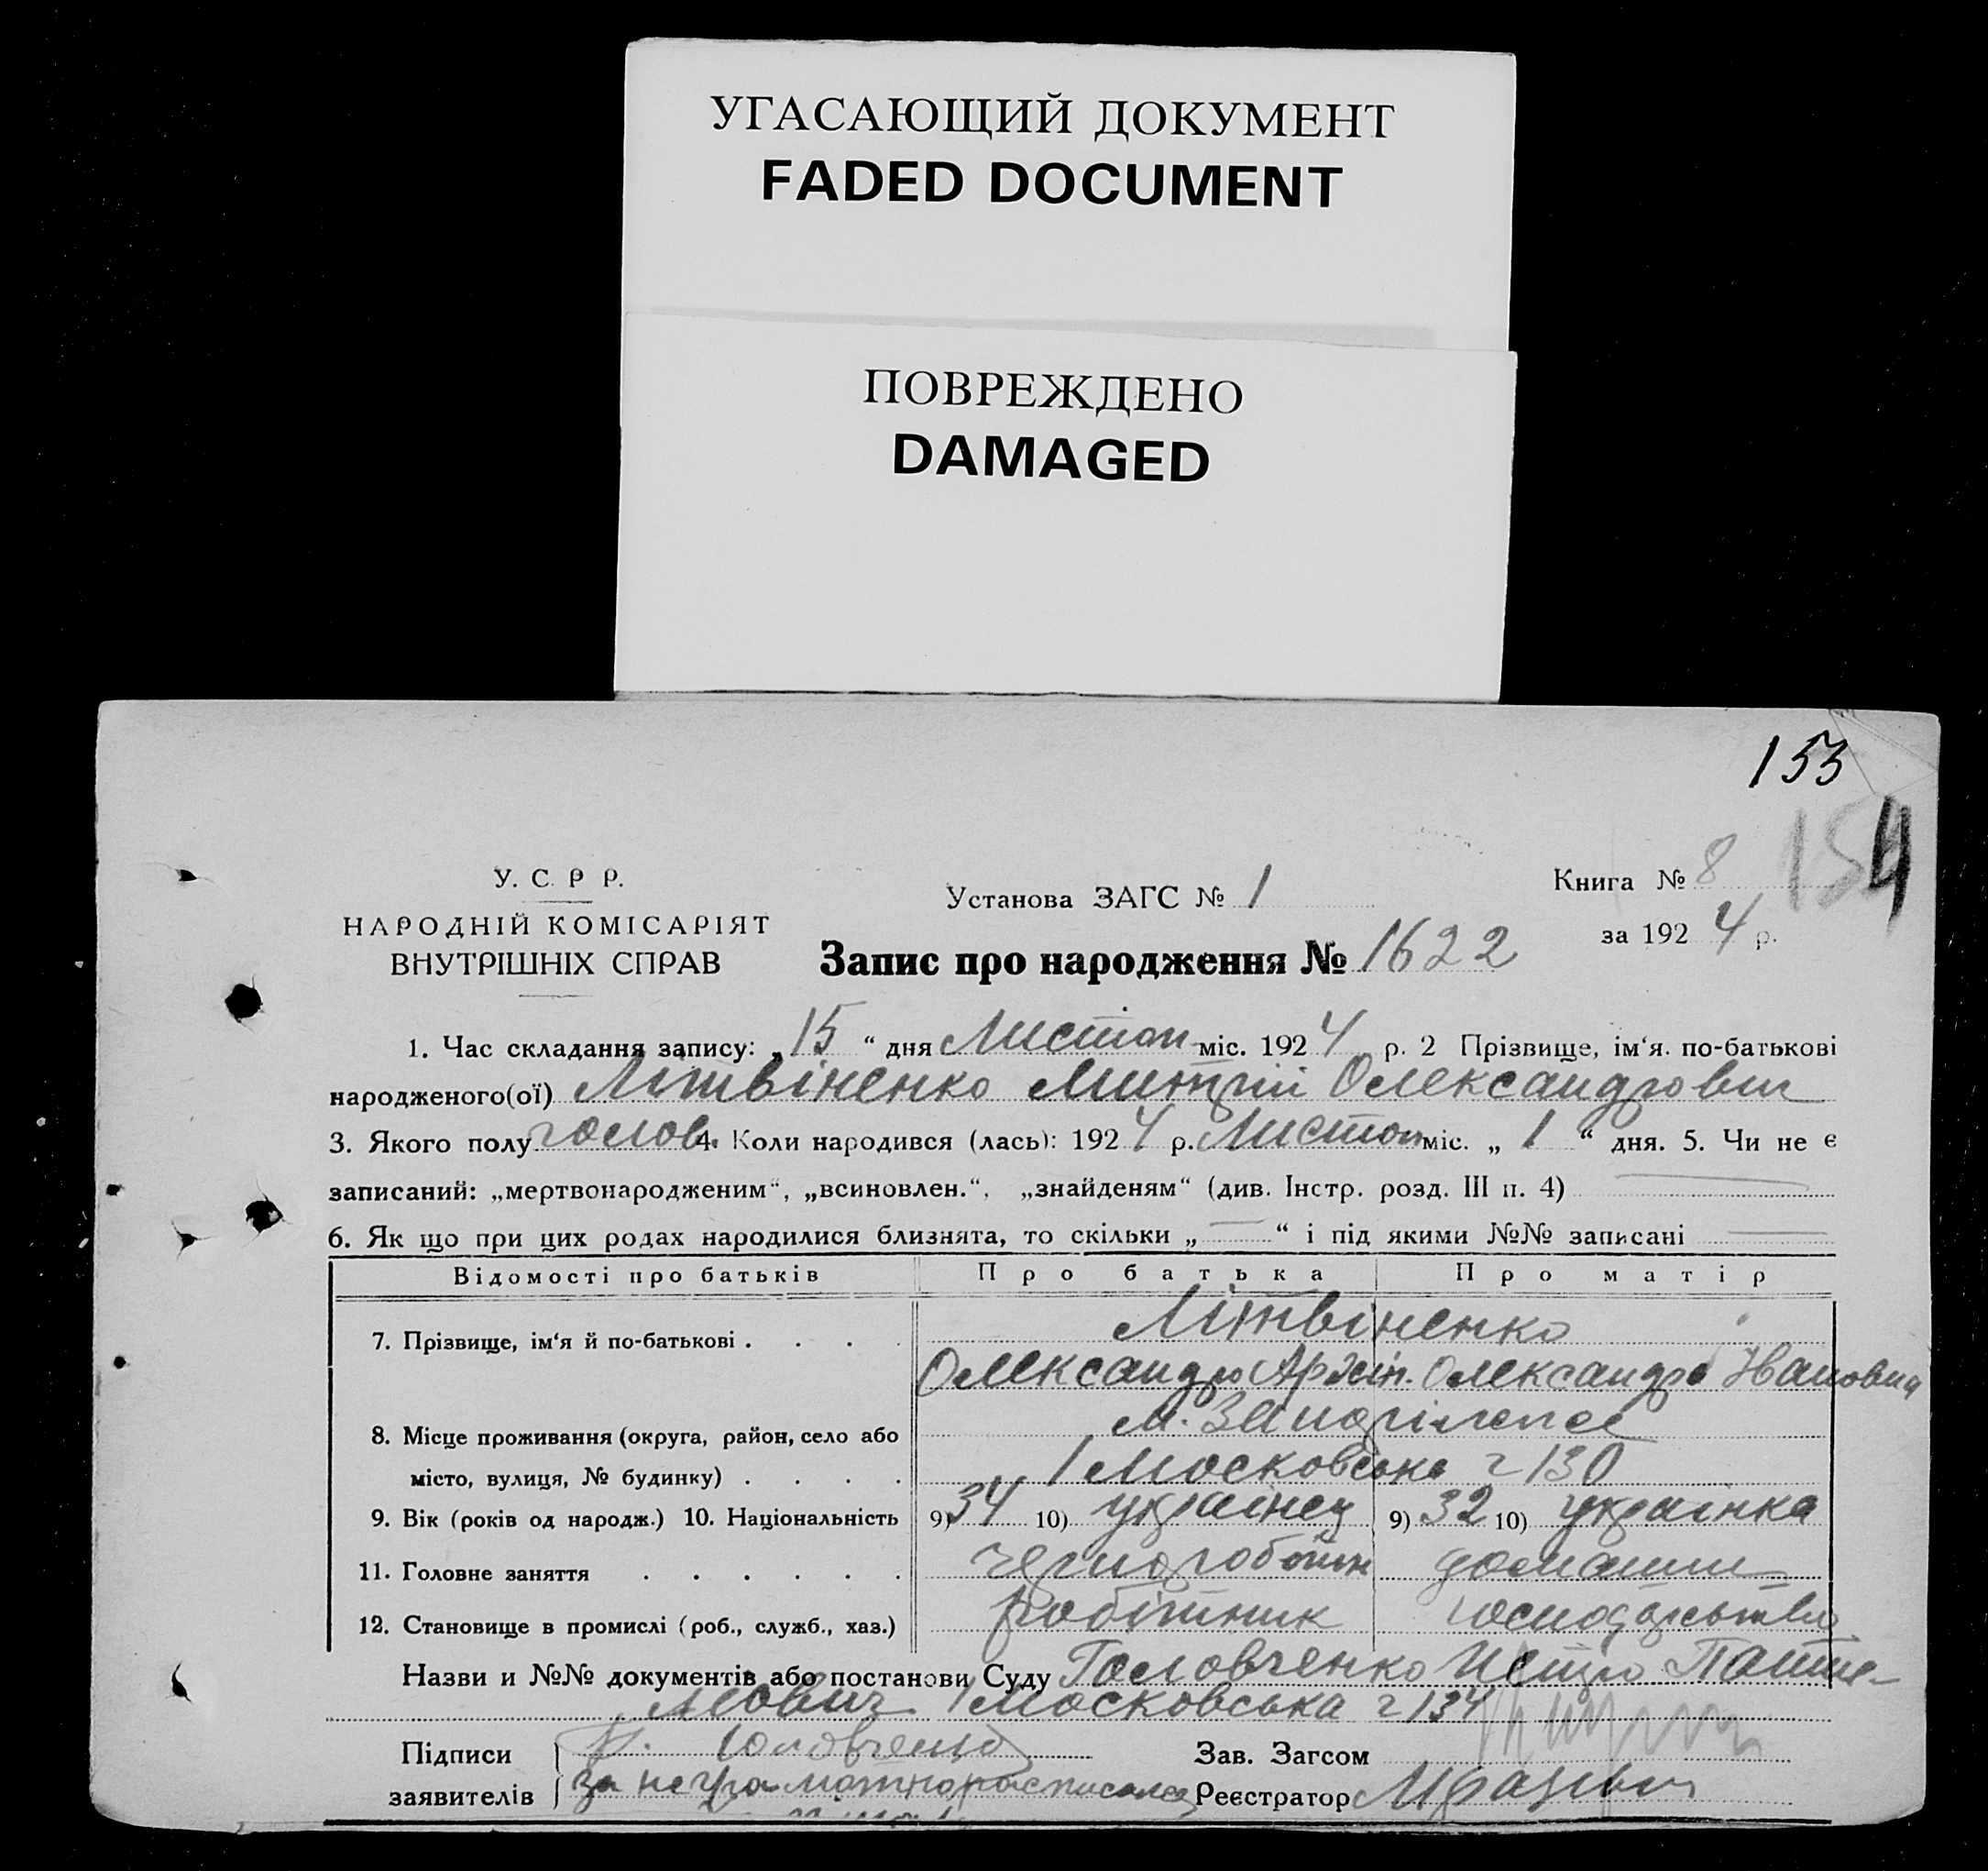 УГАСАЮЩИЙ ДОКУМЕНТ
FADED DOCUMENT
ПОВРЕЖДЕНО
DAMAGED
153
154
У. С. Р Р.
НАРОДНІЙ КОМІСАРІЯТ
ВНУТРІШНІХ СПРАВ
Установа ЗАГС № 1
Книга № 8
за 1924 р.
Запис про народження № 1622
1. Час складання запису: „15“ дня Листоп міс. 1924 р. 2 Прізвище, ім‘я. по-батькові
народженого(ої) Літвіненко Митрій Олександрович
3. Якого полу голов. 4. Коли народився (лась): 1924 р. Листоп міс. „1“ дня. 5. Чи не є
записаний: „мертвонародженим“, „всиновлен.“, „знайденям“ (див. Інстр. розд. III п. 4)
6. Як що при цих родах народилися близнята, то скільки „—“ і під якими №№ записані —
Відомості про батьків Про батька Про матір
7. Прізвище, ім‘я й по-батькові . . . . Літвіненко
Олександр Архип. Олександра Івановна
8. Місце проживання (округа, район, село або м.
місто, вулиця, № будинку) . . . . 1 Московська 2 130
9. Вік (років од народж.) 10. Національність 9) 34 10) українец 9) 32 10) українка
11. Головне заняття . . . . . . чернороботн домашн
12. Становище в промислі (роб., служб., хаз.) робітник господарьство
Назви и №№ документів або постанови Суду Головченко Панте-
лович 1 Московська 2 134
Підписи Головченко Зав. Загсом
заявителів за неграмотн росписался Реєстратор